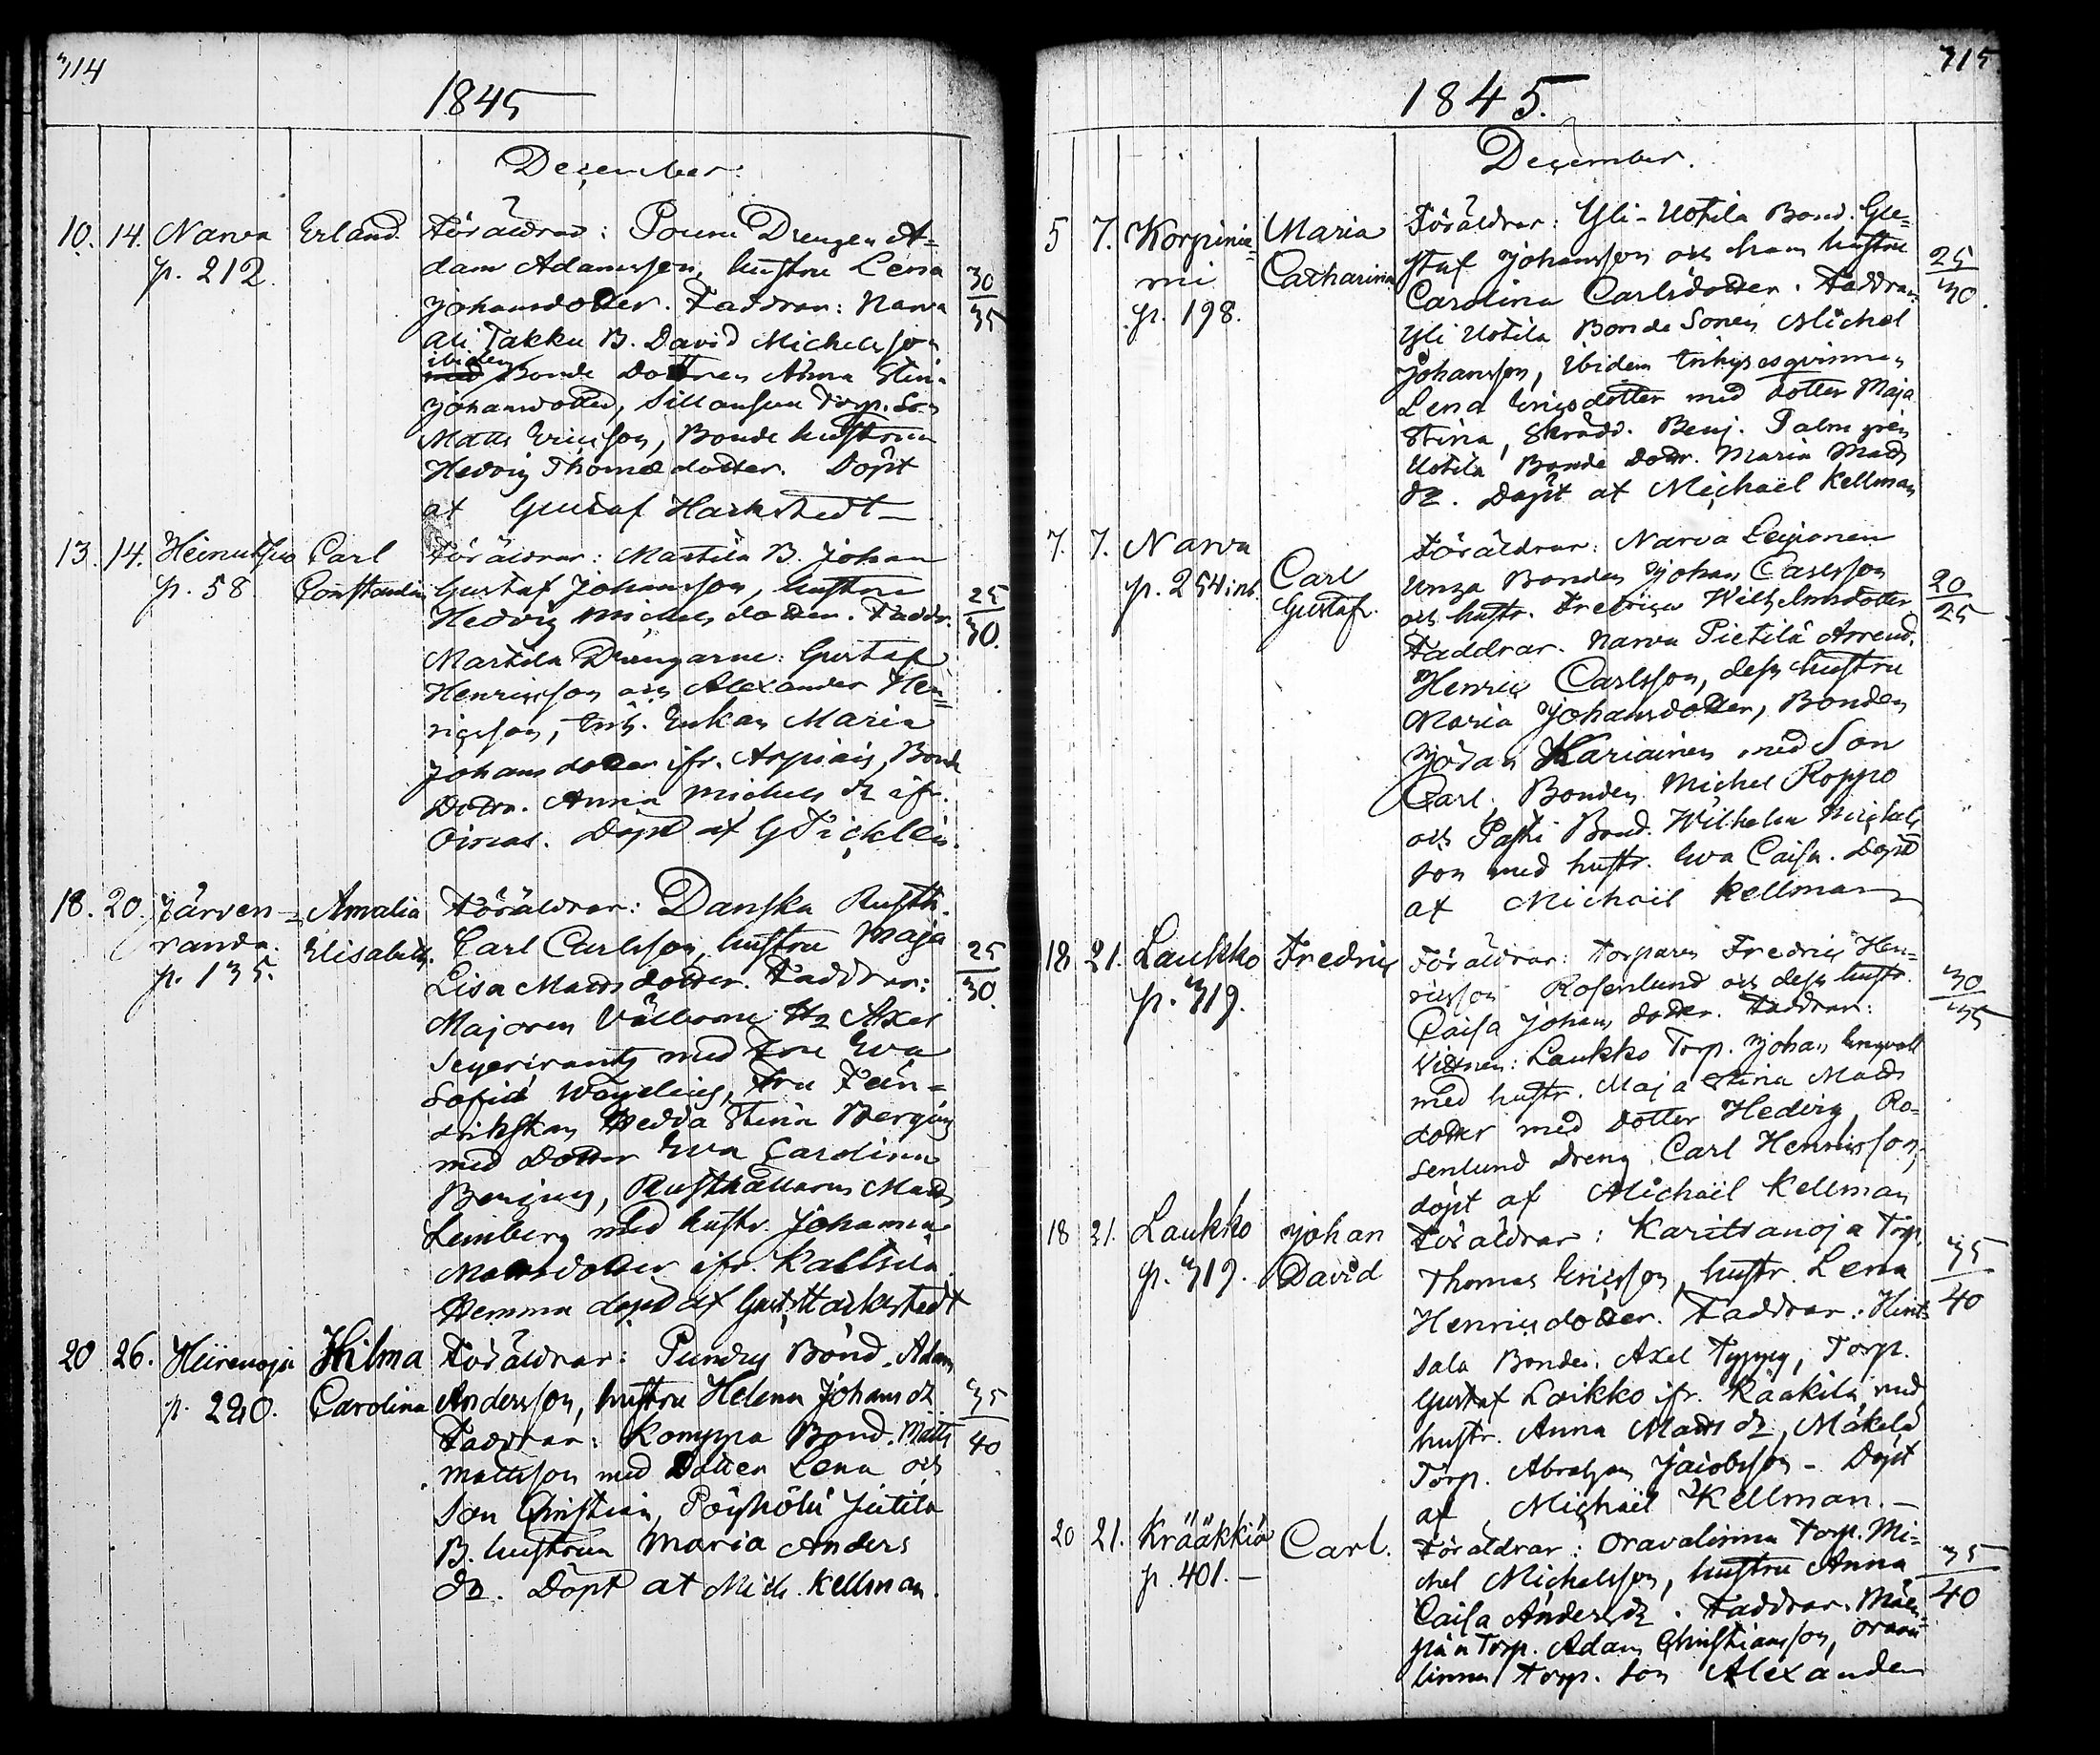 314
1845
December.
10. 14. Narva Erland. Föräldrar: Pouru Drengen A=
p. 212. dam Adamsson, hustru Lena
Johansdotter. Faddrar: Narva 30/35
Ali Takku B. David Michelsson
ibidem
Bonde Dottren Anna Stina
Johansdotter, Sillansuu Torp. Son
Matts Ericsson, Bonde hustrun
Hedvig Thomæ dotter. Döpt
af Gustaf Harkstedt
13. 14. Heinusuo Carl Föräldrar: Marttila B. Johan
p. 58. Constantin Gustaf Johansson, hustru 25/30.
Hedvig Michelsdotter. Faddr.
Marttila Drengarne: Gustaf
Henricsson och Alexander Hen=
ricsson, Enkan Maria
Johansdotter ifr. Arpiais, Bonde
Dottr. Anna Michels dr ifr.
Oinas. Döpt af G
18. 20. Järven= Amalia Föräldrar: Danska Rusth.
randa. Elisabeth. Carl Carlsson, hustru Maja 25/30.
p. 135. Lisa Matts dotter. Faddrar:
Majoren Välborne Hr Axel
med Fru Eva
Sofia Fru Fän=
drikskan Hedda Stina
med Dotter Eva Carolina
Rusthållaren Matts
Lemberg med hustr. Johanna
Mattsdotter ifr. Kallsila.
Hemma döpt af Gust. Harkstedt
20. 26. Hiirenoja Hilma Föräldrar: Bond. Adam
p. 220. Carolina Andersson, hustru Helena Johans dr 35/40
Faddrar: Komppa Bond. Matts
Mattsson med Dotter Lena och
Son Christian, Jutila
B. hustrun Maria Anders
dr. Döpt af Mich. Kellman.
315
1845.
December.
5 7. Korpinie= Maria Föräldrar: Yli-Uotila Bond. Gu=
mi Catharina staf Johansson och hans hustru 25/30.
p. 198. Carolina Carlsdotter. Faddrar:
Yli Uotila Bonde Sonen Michel
Johansson, ibidem Inhyses qvinnan
Lena Ericsdotter med dotter Maja
Stina, Skrädd. Benj. Palmgren
Uotila Bonde Dottr. Maria Matts
dr. Döpt af Michaël Kellman
7. 7. Narva Carl Föräldrar: Narva Leijonen
p. 254 Gustaf. Bonden Johan Carlsson 20/25
och hustr. Fredrica Wilhelmsdotter
Faddrar. Narva Pietilä Arrend.
Henric Carlsson, dess hustru
Maria Johansdotter, Bonden
Kariainen med Son
Carl, Bonden Michel Roppo
och Passi Bond. Wilhelm Michels
son med hustr. Eva Caisa. Döpt
af Michaël Kellman
18 21. Laukko Fredric Föräldrar: Torparen Fredric Hen=
p. 319. ricsson Rosenlund och dess hustr. 30/35
Caisa Johans dotter. Faddrar:
Vittnen: Laukko Torp. Johan
med hustr. Maja Stina Matts
dotter med Dotter Hedvig, Ro=
senlund Dreng Carl Henricsson,
döpt af Michaël Kellman
18 21. Laukko Johan Föräldrar: Karitsanoja Torp.
p. 319. David Thomas Ericsson, hustr. Lena 35/40
Henricsdotter. Faddrar: Hint=
sala Bonden Axel Typpy, Torp.
Gustaf Laikko ifr. Kääkilä med
hustr. Anna Matts dr, Mäkelä
Torp. Abraham Jacobsson – Döpt
af Michaël Kellman. –
20 21. Krääkkiö Carl. Föräldrar: Oravalinna Torp. Mi=
p. 401. – chel Michelsson, hustru Anna 35/40
Caisa Anders dr. Faddrar. Mäen=
pää Torp. Adam Christiansson, Orava
linna Torp. Son Alexander